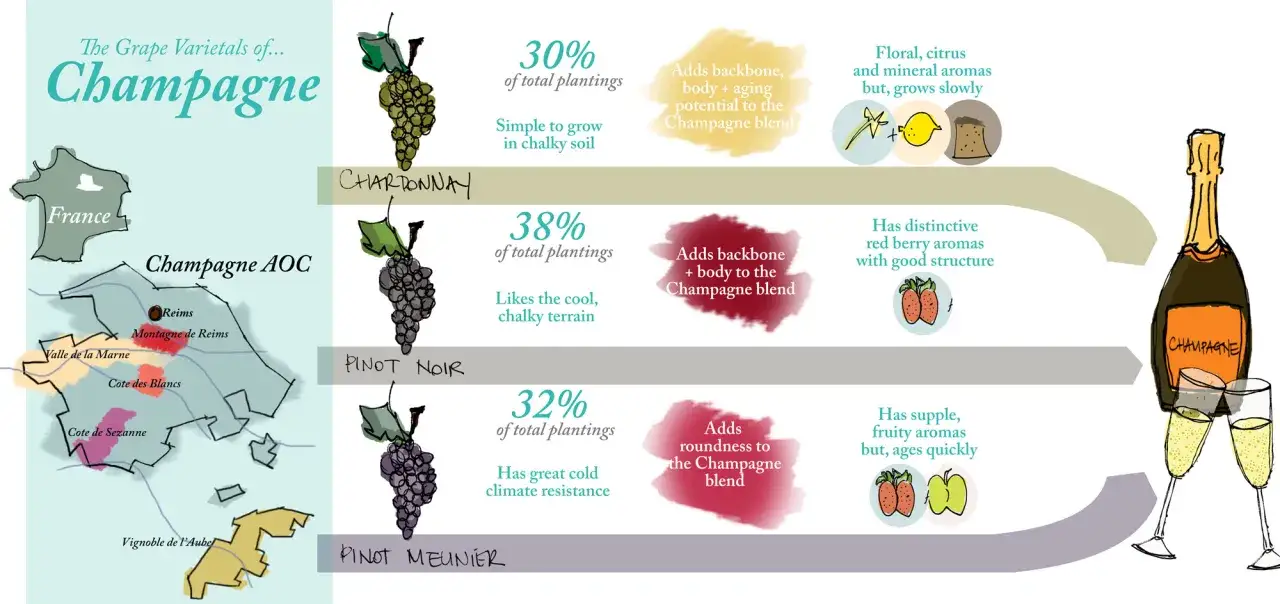 The Grape Varietals of...
Champagne
France
Champagne AOC
Reims
Montagne de Reims
Valle de la Marne
Cote des Blancs
Cote de Sezanne
Vignoble de l'Aube
30%
of total plantings
Simple to grow
in chalky soil
Adds backbone,
body + aging
potential to the
Champagne blend
Floral, citrus
and mineral aromas
but, grows slowly
+
CHARDONNAY
38%
of total plantings
Likes the cool,
chalky terrain
Adds backbone
+ body to the
Champagne blend
Has distinctive
red berry aromas
with good structure
PINOT NOIR
32%
of total plantings
Has great cold
climate resistance
Adds
roundness to
the Champagne
blend
Has supple,
fruity aromas
but, ages quickly
PINOT MEUNIER
CHAMPAGNE